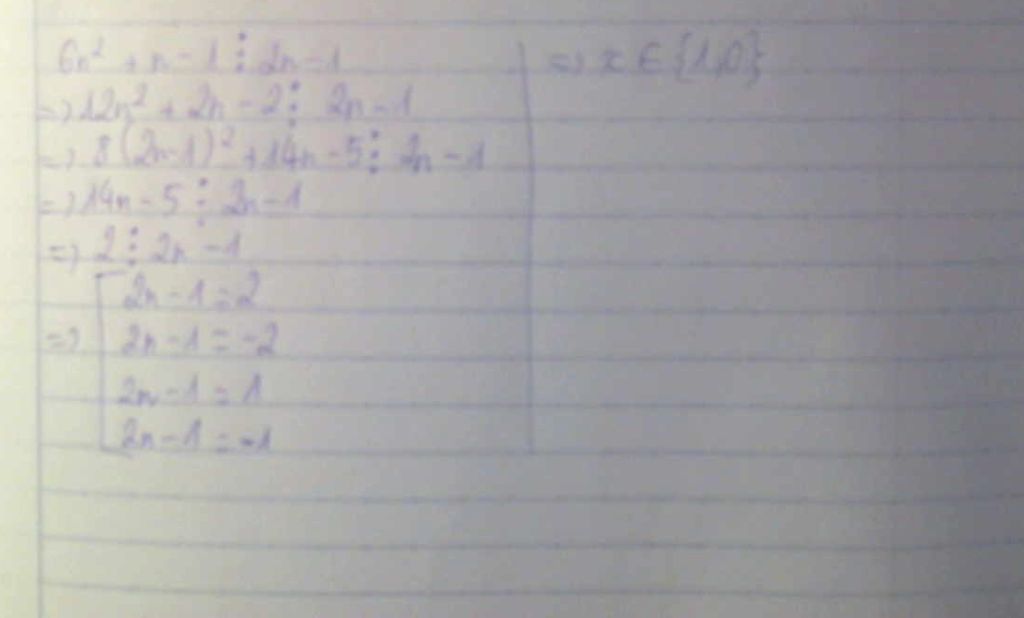 6n² + n - 1 ⋮ 2n - 1
=> 12n² + 2n - 2 ⋮ 2n - 1
=> 3(2n-1)² + 14n - 5 ⋮ 2n - 1
=> 14n - 5 ⋮ 2n - 1
=> 2 ⋮ 2n - 1
=> [ 2n - 1 = 2
2n - 1 = -2
2n - 1 = 1
2n - 1 = -1
=> x ∈ {1,0}